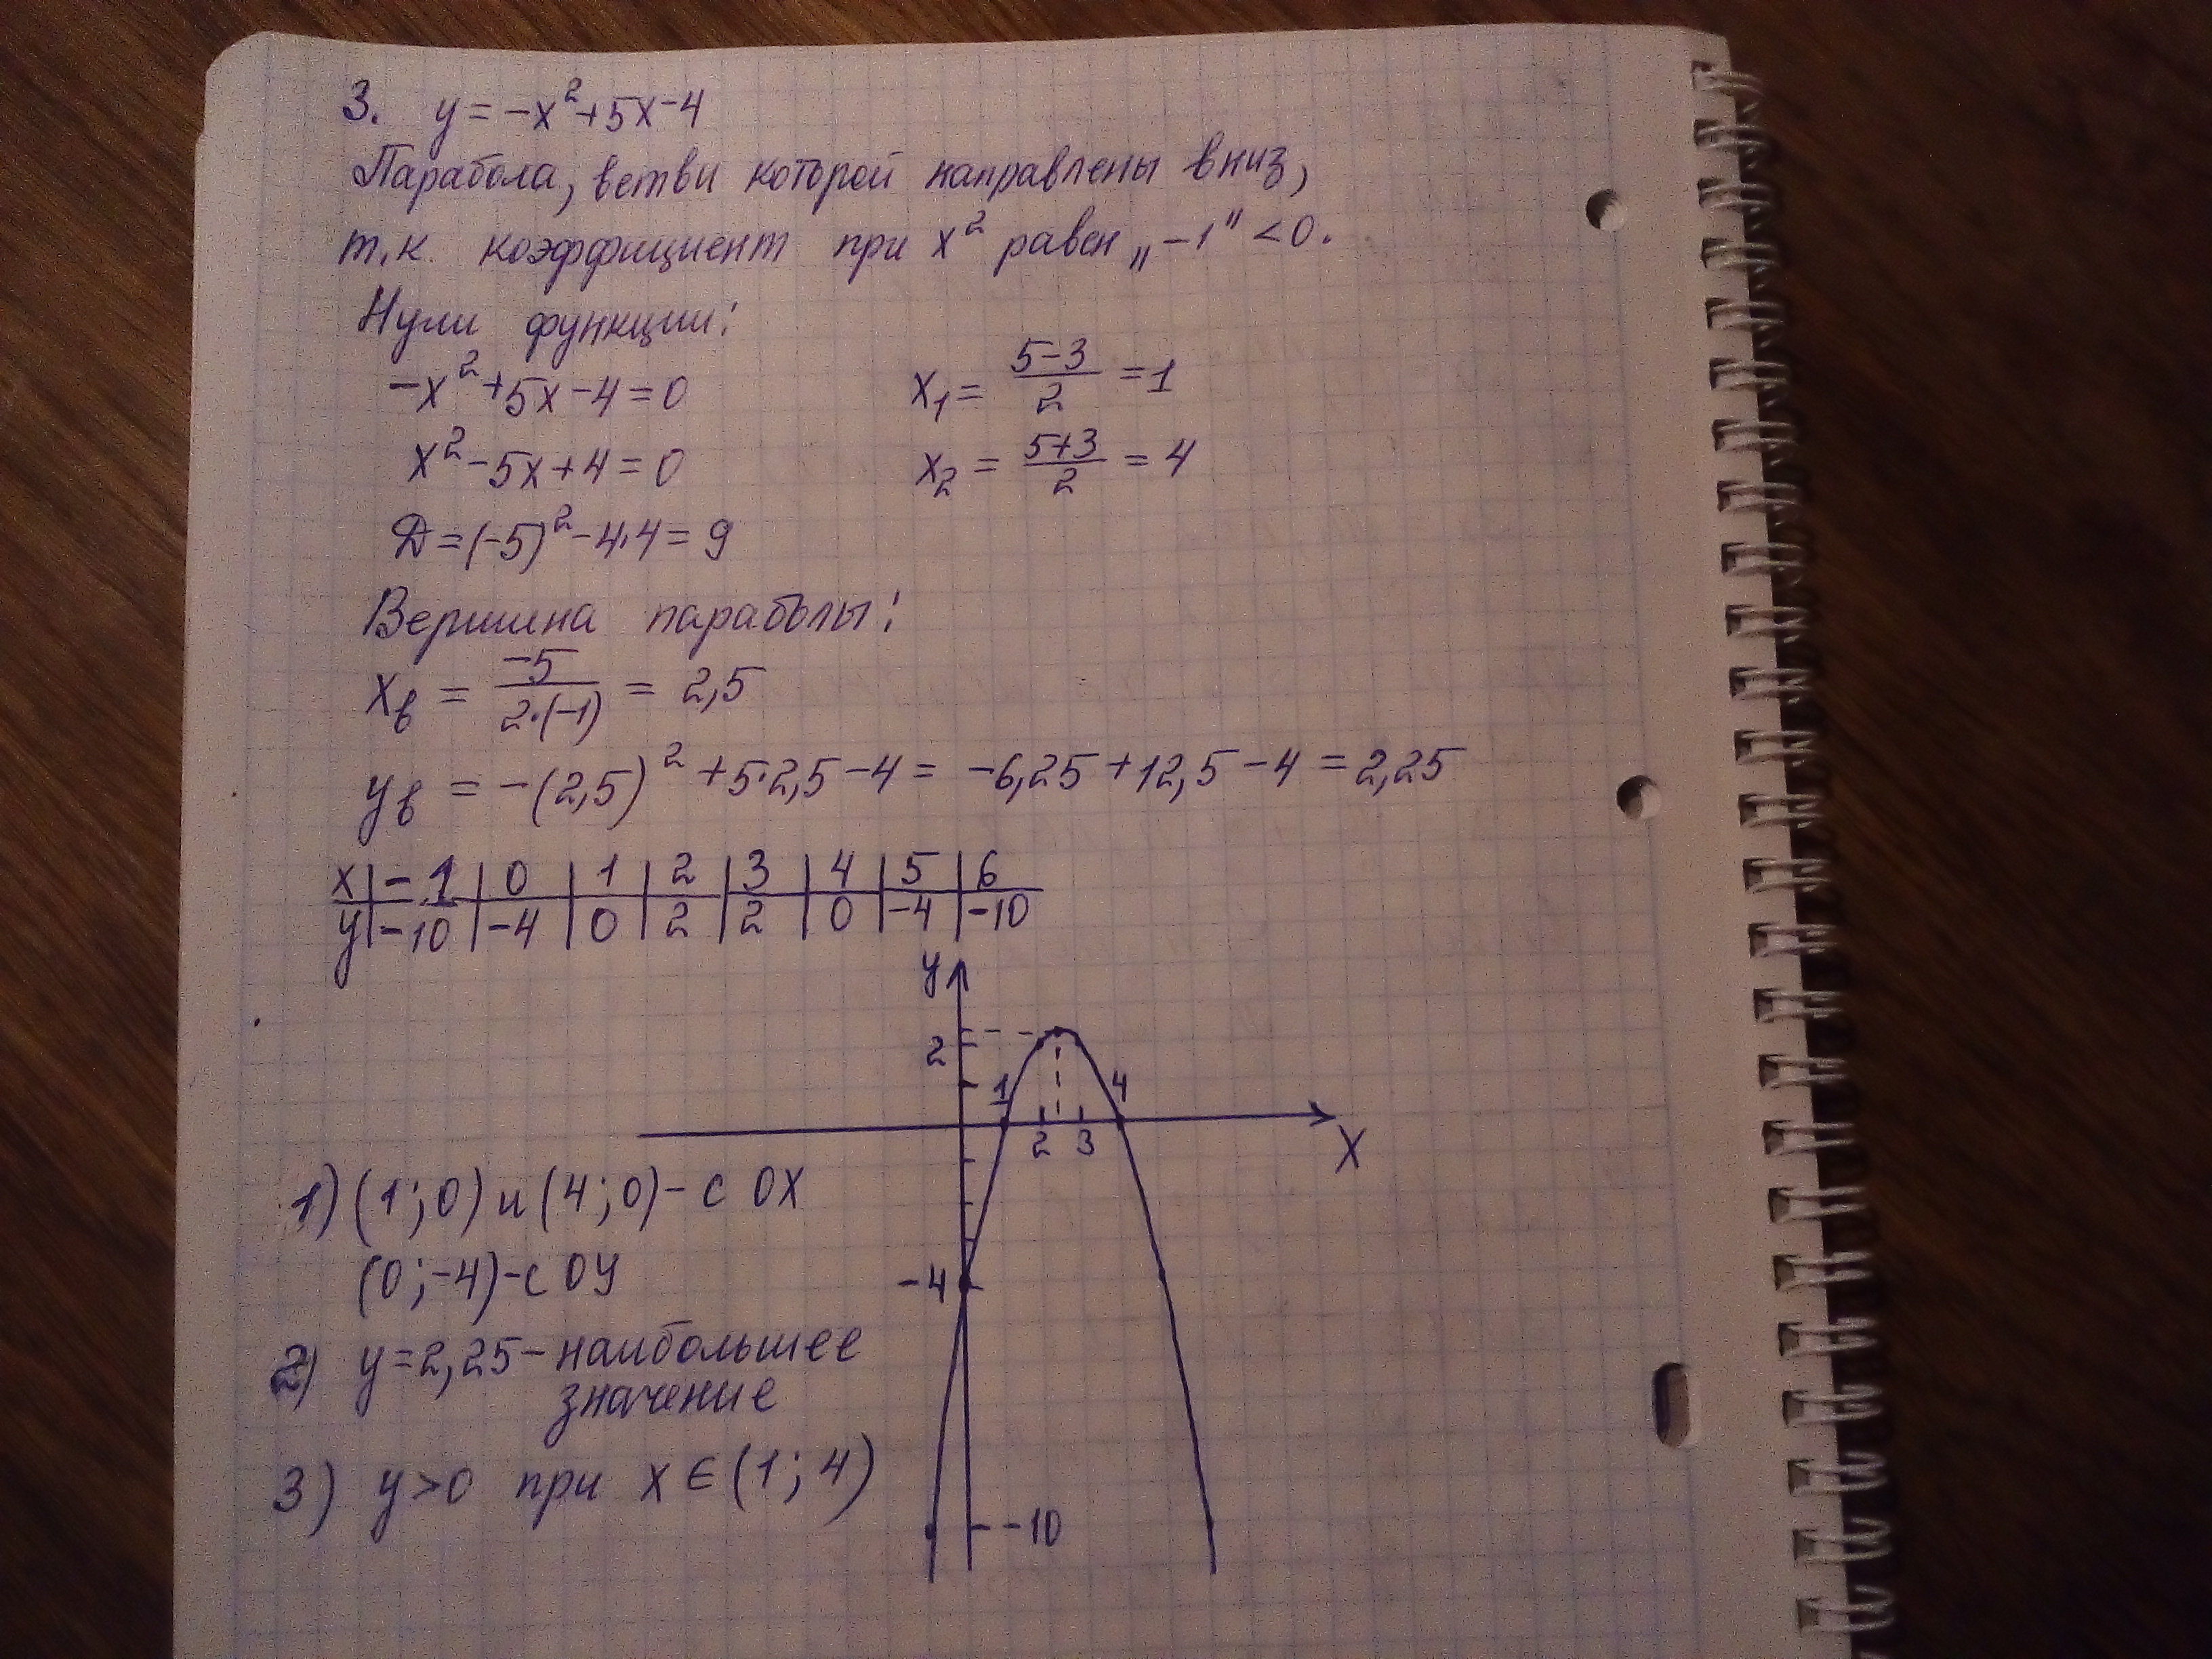 3. y = -x²+5x-4
Парабола, ветви которой направлены вниз,
т.к. коэффициент при x² равен „-1" <0.
Нули функции:
-x²+5x-4=0
x₁ = (5-3)/2 = 1
x²-5x+4=0
x₂ = (5+3)/2 = 4
Д=(-5)²-4·4=9
Вершина параболы:
xв = -5/(2·(-1)) = 2,5
yв = -(2,5)²+5·2,5-4 = -6,25+12,5-4 = 2,25
x | -1 | 0 | 1 | 2 | 3 | 4 | 5 | 6
y | -10 | -4 | 0 | 2 | 2 | 0 | -4 | -10
y
2
1 4
2 3
X
1) (1;0) и (4;0) - с OX
(0;-4) - с OY
-4
2) y=2,25 - наибольшее
значение
3) y>0 при x∈(1;4)
-10